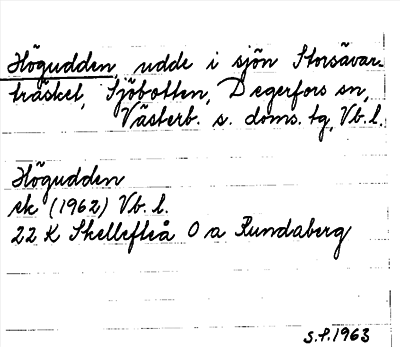 Högudden, udde i sjön Storsävar-
träsket, Sjöbotten, Degerfors sn,
Västerb. s. doms. tg, Vb. l.
Högudden
ek (1962) Vb. l.
22 K Skellefteå 0 a Rundaberg
S.P. 1963